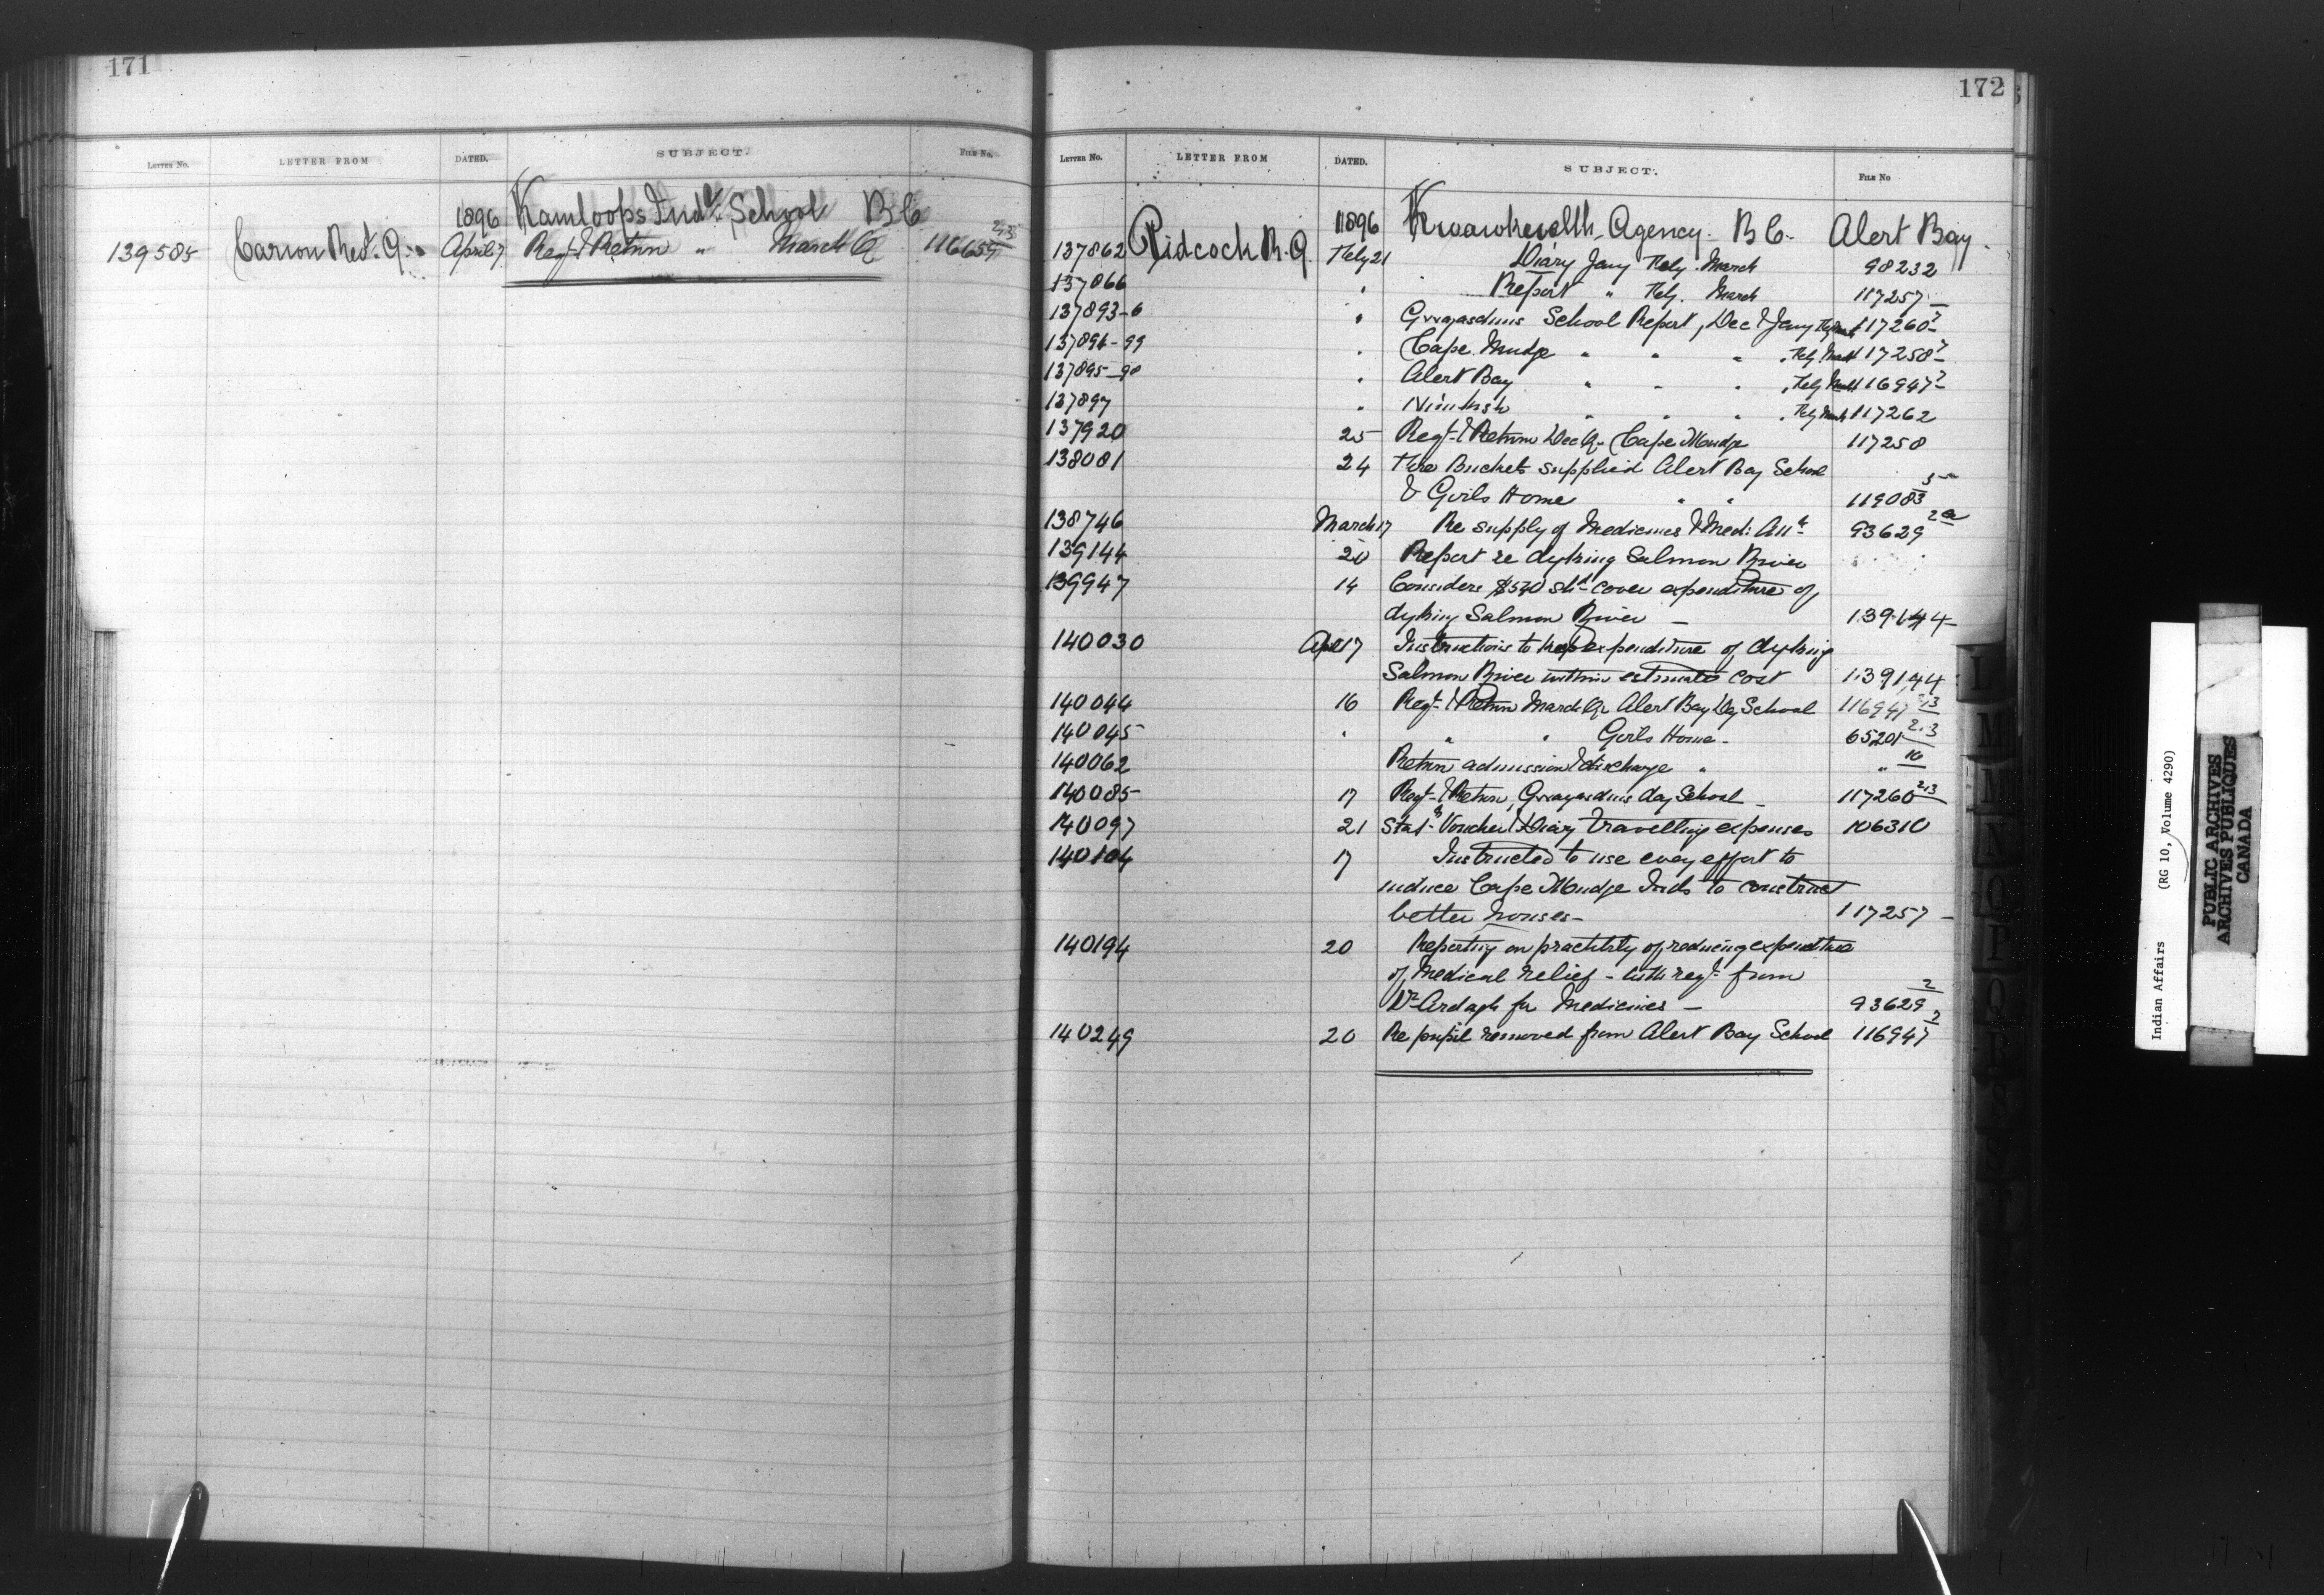 171
LETTER NO. LETTER FROM DATED. SUBJECT. FILE NO.
1896 Kamloops Indl. School B C
139585 Carion Revd. G. April 7 Reqt & Return " March Qr 116659 2-35
172
LETTER NO. LETTER FROM DATED. SUBJECT. FILE NO
1896 Kwawkewlth Agency. B C. Alert Bay.
137862 Pidcock R. Feby 21 Diary Jany Feby. March 98232
137866 " Report " Feby. March 117257
137893-6 " Gwayasdums School Report, Dec & Jany Feby March 117260-7
137894-99 " Cape Mudge " " " Feby March 117258-7
137895-98 " Alert Bay " " " Feby March 116947-2
137897 " Nimkish " " " Feby March 117262
137920 25 Reqt & Return Dec Qr Cape Mudge 117258
138081 24 Fire Buckets supplied Alert Bay School
& Girls Home " " 119083 5
138746 March 17 Re supply of Medicines & Med: Att 93629 2a
139144 20 Report re dyking Salmon River
139947 14 Considers $540 shd cover expenditure of
dyking Salmon River — 139144
140030 Apl 17 Instructions to keep expenditure of dyking
Salmon River within estimated cost 139144
140044 16 Reqt & Return March Qr Alert Bay Day School 116947 2-3
140045 " " " Girls Home - 65201 2-3
140062 Return admission & discharge " " 10
140085 17 Reqt & Return, Gwayasdums day School - 117260 2-3
140097 21 Stat. Voucher & Diary Travelling expenses 106310
140104 17 Instructed to use every effort to
induce Cape Mudge Inds to construct
better houses- 117257 -
140194 20 Reporting on practblty of reducing expenditure
of Medical relief - with reqt. from
Dr Ardagh for Medicines — 93629 2
140249 20 Re pupil removed from Alert Bay School 116947 2
I
M
M
N
O
P
Q
R
S
S
T
Indian Affairs (RG 10, Volume 4290)
PUBLIC ARCHIVES
ARCHIVES PUBLIQUES
CANADA